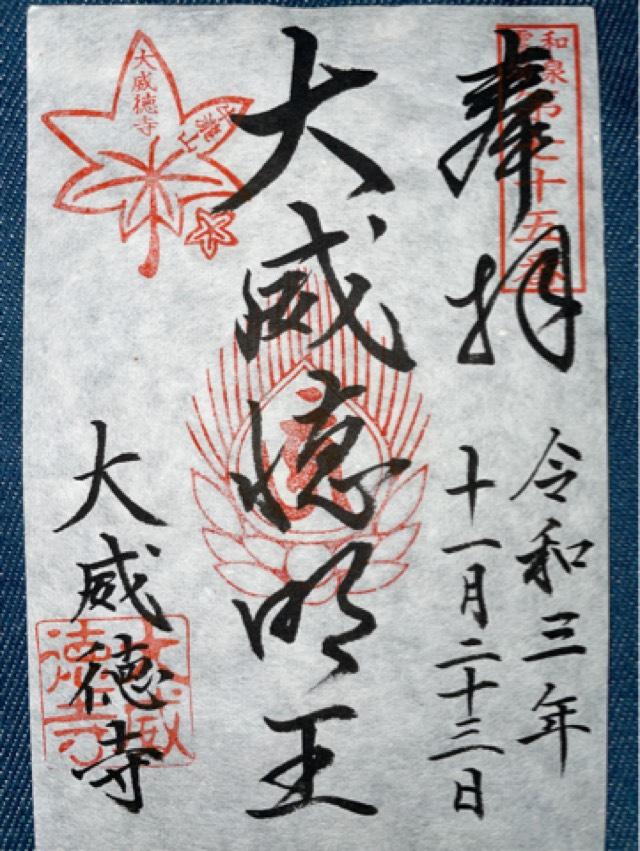 奉拝
令和三年
十一月二十三日
大威徳明王
大威徳寺
和泉
第七十五番
大威徳寺
牛瀧山
大威徳寺